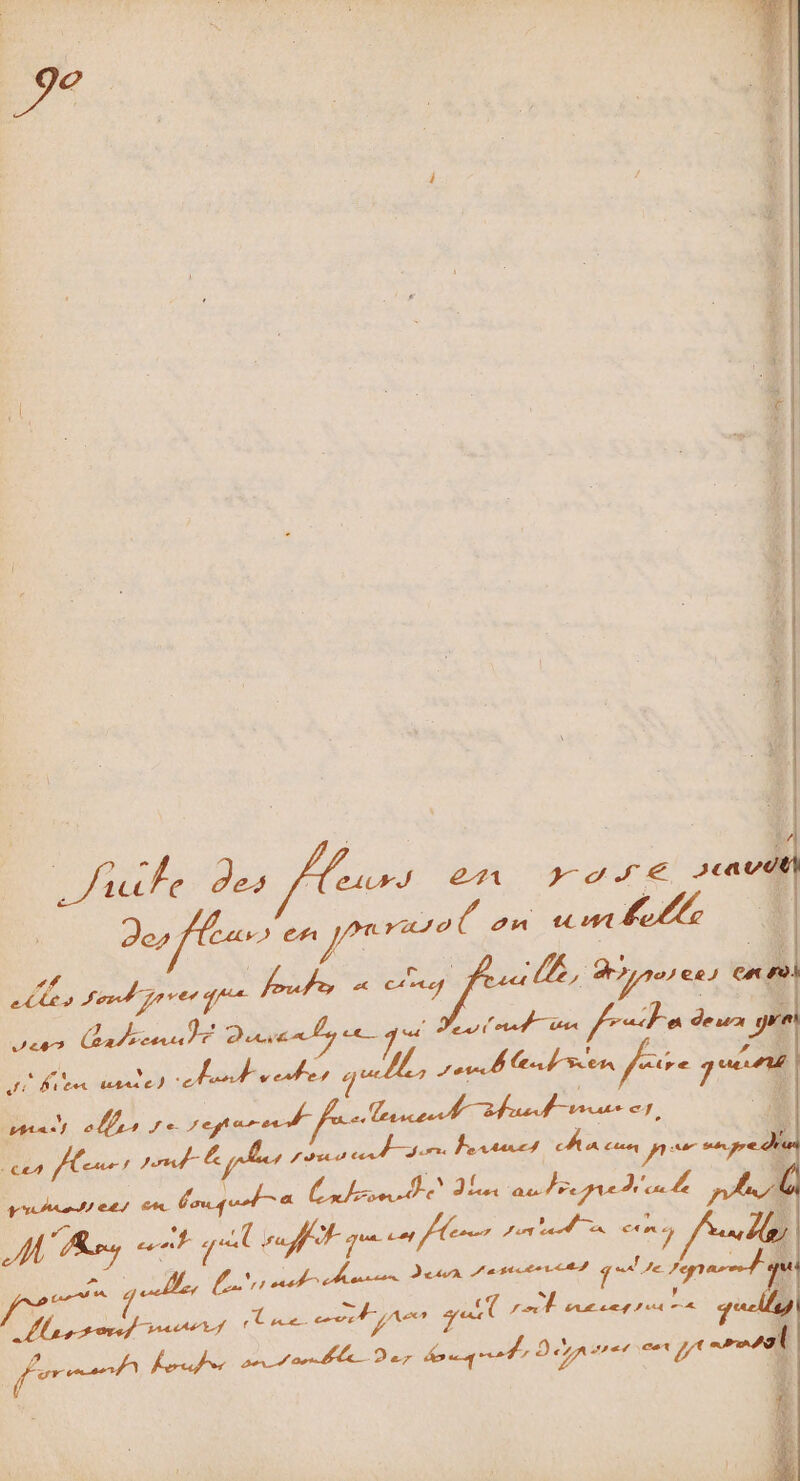 90
Suite des fleurs en rose scavoir
Des fleurs en parasol ou umbelle
elles sont presque toutes a cinq feuilles, disposees en ro
ses a lextremité du calyce qui devient un fruit a deux gra
si bien unies estant vertes quelles semblent nen faire quune
mais elles se separent facilement estant mures,
ces fleurs sont le plus souvent soutenues chacun par un pedicu
ramassees en bouquet a lextremité dun autre pedicule plus lo
Mr Ray croit quil suffit que ces fleurs soient a cinq feuilles
pourvu quelles laissent chacune deux semences qui se separent qu
elles sont mures il ne croit pas quil soit necessaire quelles
forment toutes ensemble des bouquets disposes en parasol